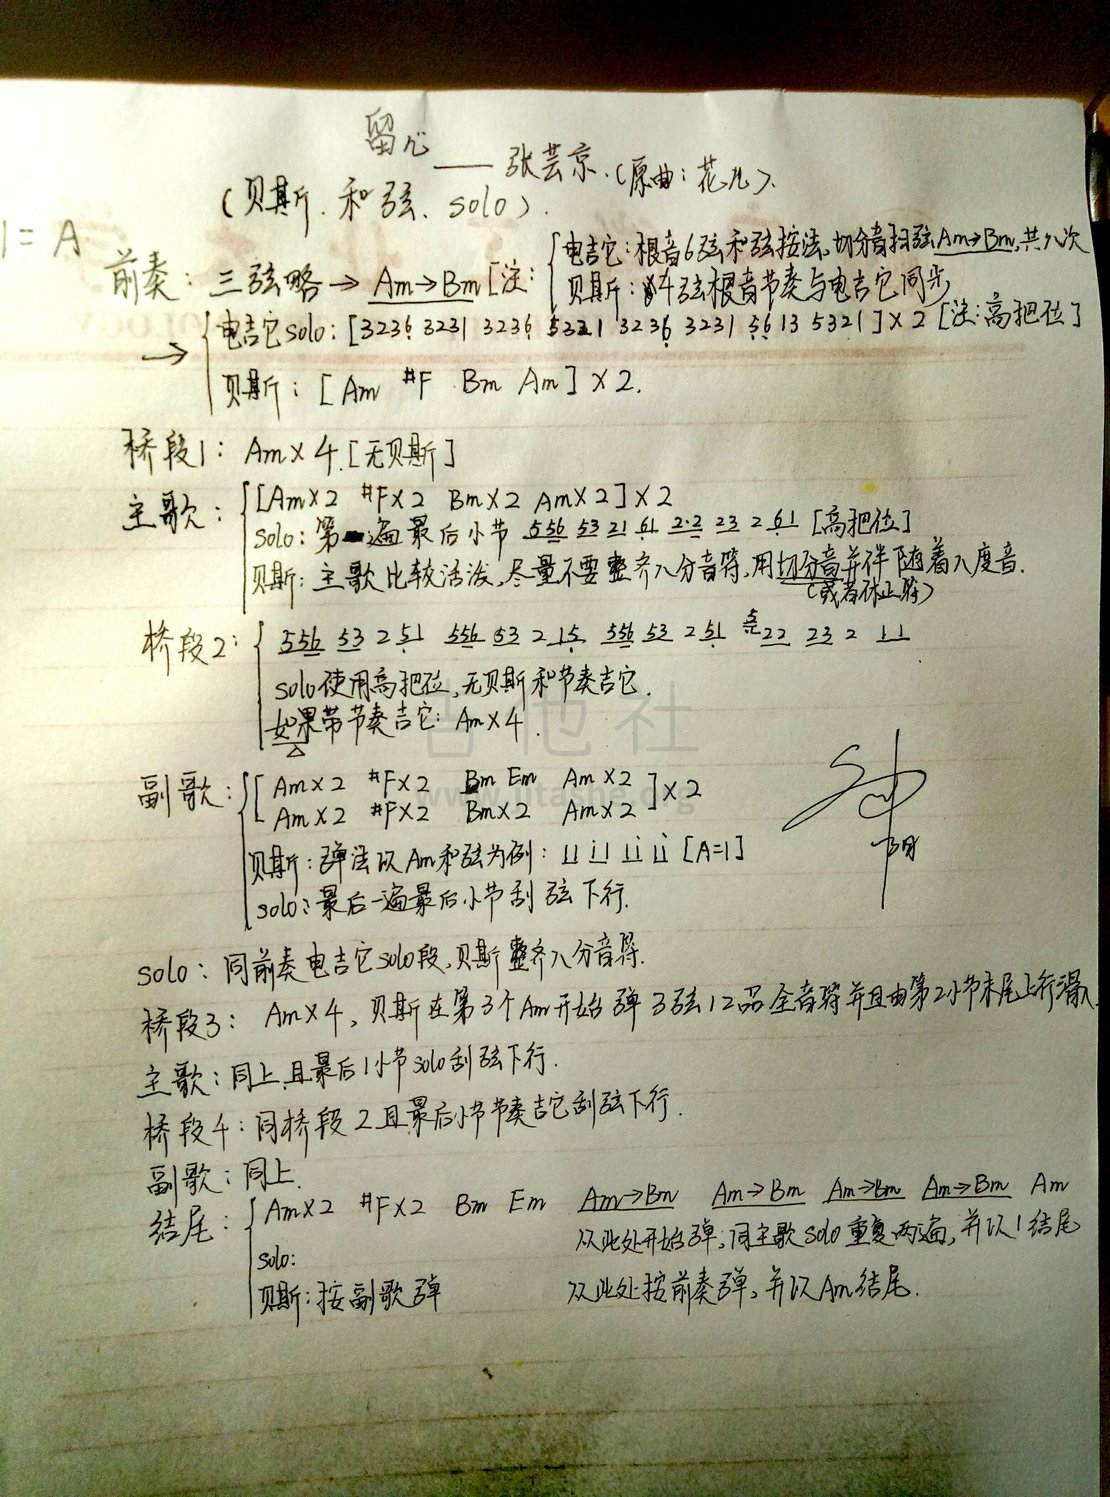 留心
—— 张芸京.(原曲:花儿).
(贝斯.和弦、solo).
1=A
前奏: 三弦略→Am→Bm[注:
电吉它:根音6弦和弦按法,切分音扫弦Am→Bm,共八次
贝斯:4弦根音节奏与电吉它同步
→ 电吉它solo:[3236 3231 3236 5321 3236 3231 5613 5321]×2[注:高把位]
贝斯:[Am #F Bm Am]×2.
桥段1: Am×4.[无贝斯]
主歌: [Am×2 #F×2 Bm×2 Am×2]×2
solo:第一遍最后小节 556 53 21 61 2·2 23 2 61 [高把位]
贝斯:主歌比较活泼,尽量不要整齐八分音符,用切分音并伴随着八度音.
(或者休止符)
桥段2: 556 53 2 51 556 53 2 15 556 53 2 51 5 22 23 2 11
solo使用高把位,无贝斯和节奏吉它.
如果带节奏吉它: Am×4.
吉他社
副歌: [Am×2 #F×2 Bm Em Am×2
Am×2 #F×2 Bm×2 Am×2]×2
贝斯:弹法以Am和弦为例: 11 i1 11 ii [A=1]
solo:最后一遍最后小节刮弦下行.
solo: 同前奏电吉它solo段,贝斯整齐八分音符.
桥段3: Am×4,贝斯在第3个Am开始弹3弦12品全音符并且由第2小节末尾上行滑入.
主歌:同上,且最后1小节solo刮弦下行.
桥段4:同桥段2且最后小节节奏吉它刮弦下行.
副歌:同上.
结尾: Am×2 #F×2 Bm Em Am→Bm Am→Bm Am→Bm Am→Bm Am
solo: 从此处开始弹,同主歌solo重复两遍,并以1结尾
贝斯:按副歌弹 从此处按前奏弹,并以Am结尾.